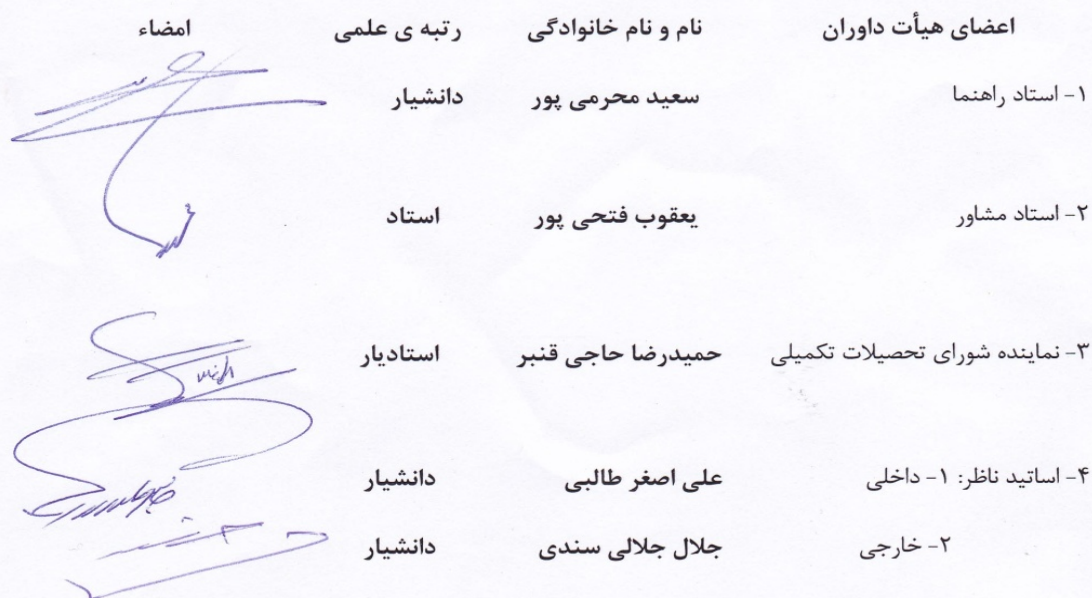 اعضای هیأت داوران نام و نام خانوادگی رتبه ی علمی امضاء
۱- استاد راهنما سعید محرمی پور دانشیار
۲- استاد مشاور یعقوب فتحی پور استاد
۳- نماینده شورای تحصیلات تکمیلی حمیدرضا حاجی قنبر استادیار
۴- اساتید ناظر: ۱- داخلی علی اصغر طالبی دانشیار
۲- خارجی جلال جلالی سندی دانشیار